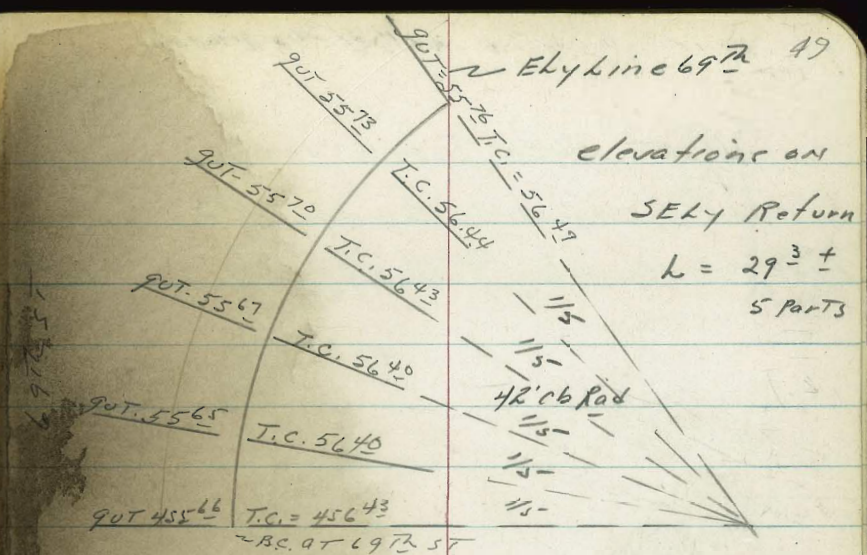 49
ELy Line 69Th
elevations on
SELy Return
L = 29 3 ±
5 Parts
gut = 55 76 T.C. = 56 49
gut 55 73 T.C. 56.44
gut - 55 70 T.C. 56 43
gut - 55 67 T.C. 56 40
gut. 55 65 T.C. 56 40
gut 455 66 T.C. = 456 43
B.C. at 69Th ST
1/5
1/5
42' cb Rad
1/5
1/5
1/5